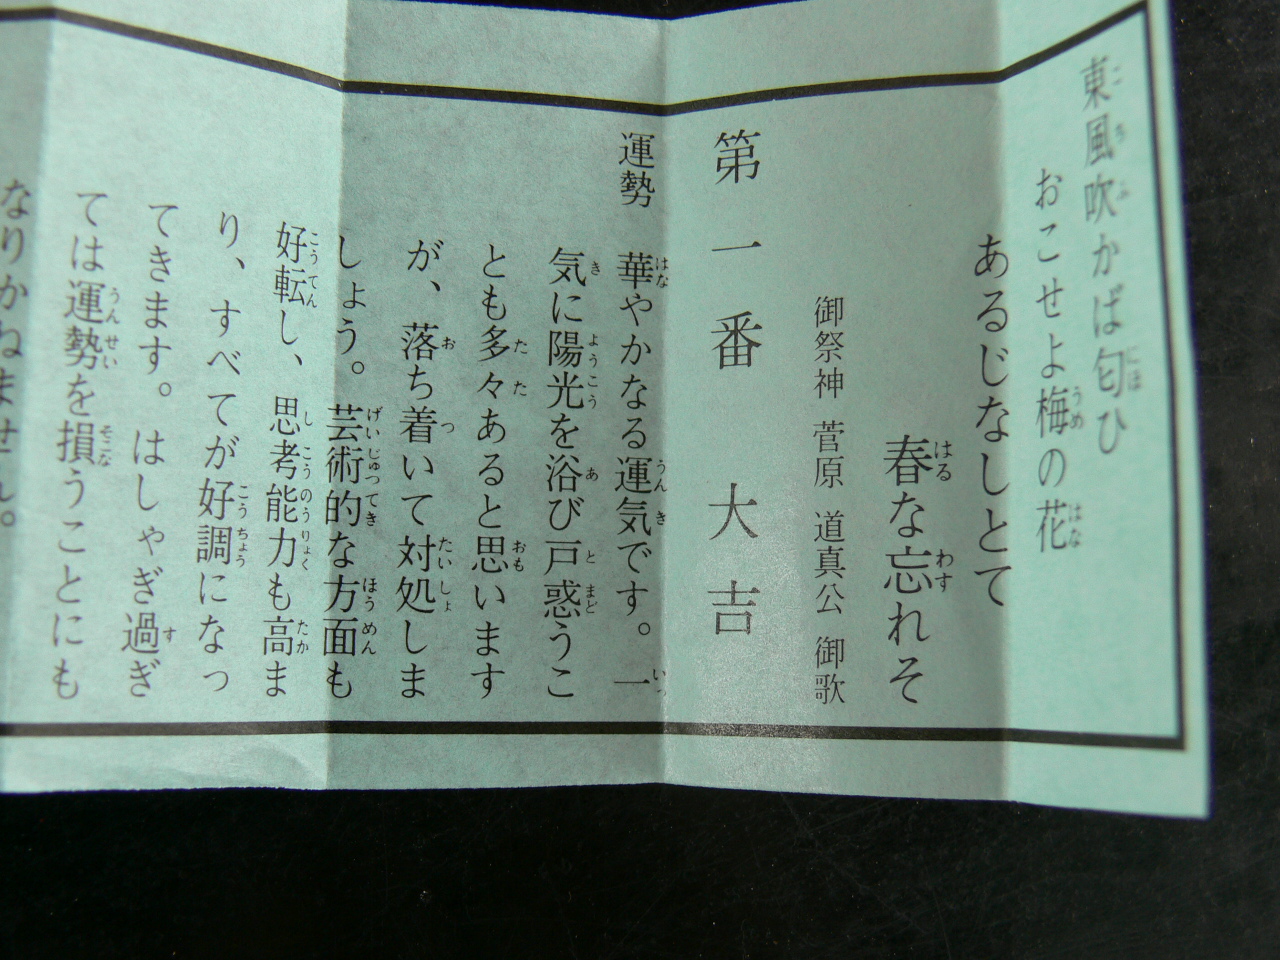 東風吹かば匂ひ
おこせよ梅の花
あるじなしとて
春な忘れそ
御祭神 菅原 道真公 御歌
第一番 大吉
運勢 華やかなる運気です。一
気に陽光を浴び戸惑うこ
とも多々あると思います
が、落ち着いて対処しま
しょう。芸術的な方面も
好転し、思考能力も高ま
り、すべてが好調になっ
てきます。はしゃぎ過ぎ
ては運勢を損うことにも
なりかねません。